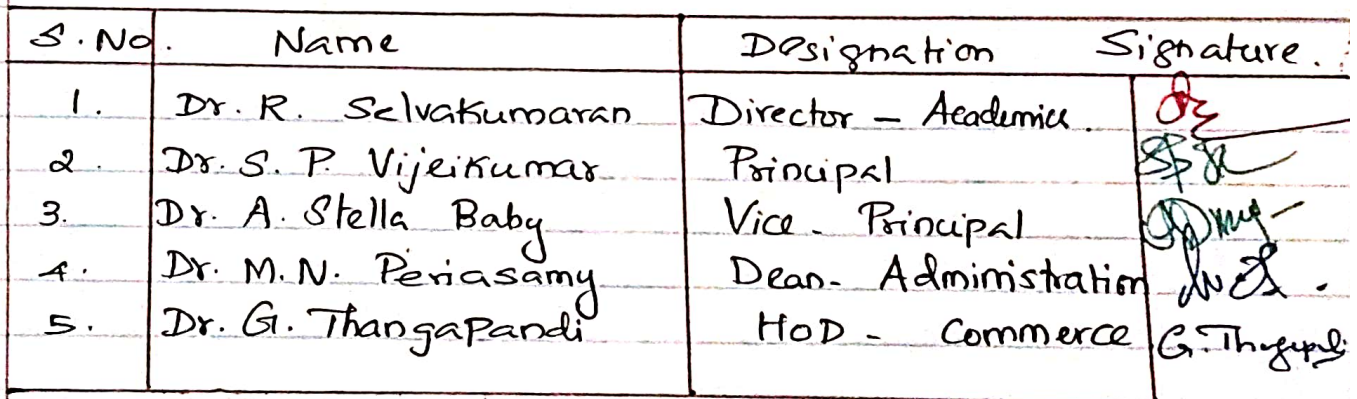 S. No. Name Designation Signature.
1. Dr. R. Selvakumaran Director - Academics.
2. Dr. S. P. Vijeikumar Principal
3. Dr. A. Stella Baby Vice - Principal
4. Dr. M. N. Periasamy Dean - Administration
5. Dr. G. Thangapandi HOD - Commerce